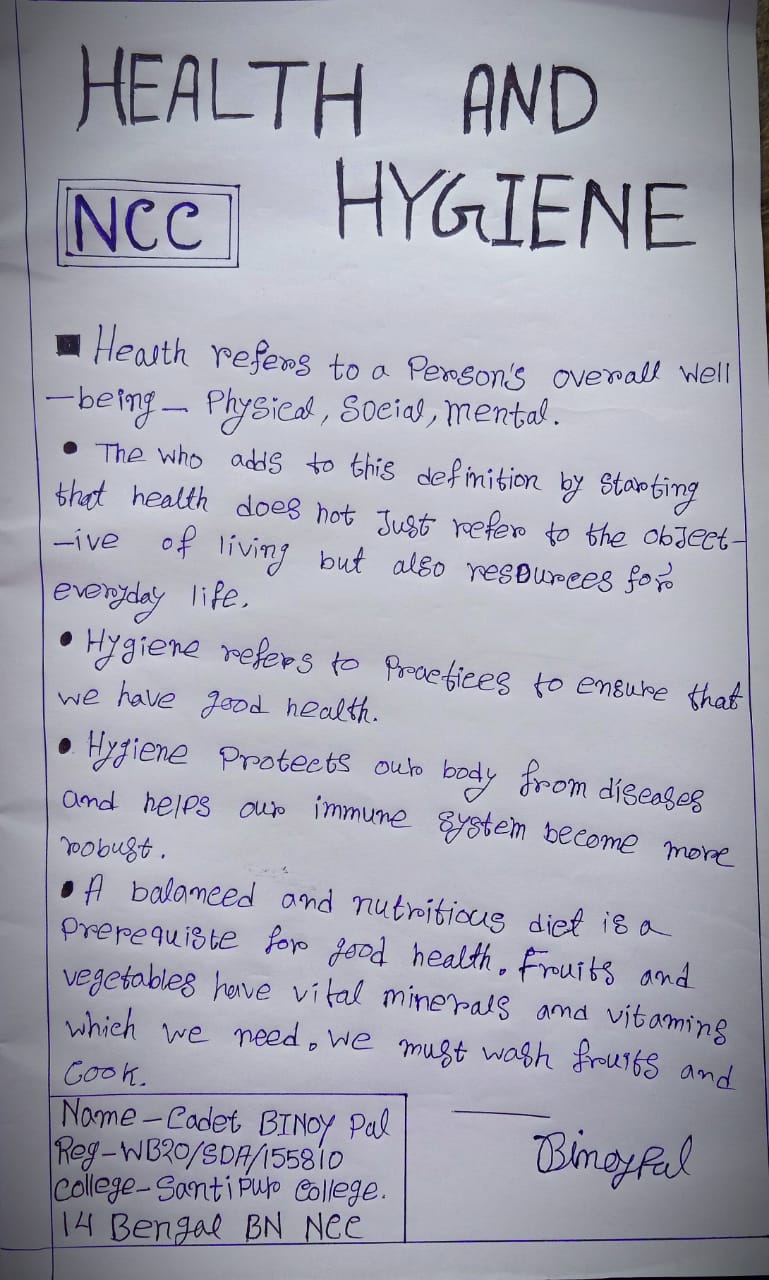 HEALTH AND
HYGIENE
NCC
Health refers to a Person's overall well
-being- Physical, Social, mental.
• The who adds to this definition by starting
that health does not Just refer to the object-
-ive of living but also resources for
everyday life.
• Hygiene refers to Practices to ensure that
we have good health.
• Hygiene Protects our body from diseases
and helps our immune system become more
robust.
• A balanced and nutritious diet is a
Prerequiste for good health. Fruits and
vegetables have vital minerals and vitamins
which we need. We must wash fruits and
Cook.
Name - Cadet BINOY Pal
Reg-WB20/SDA/155810
College-Santipur College.
14 Bengal BN NCC
Binoy Pal